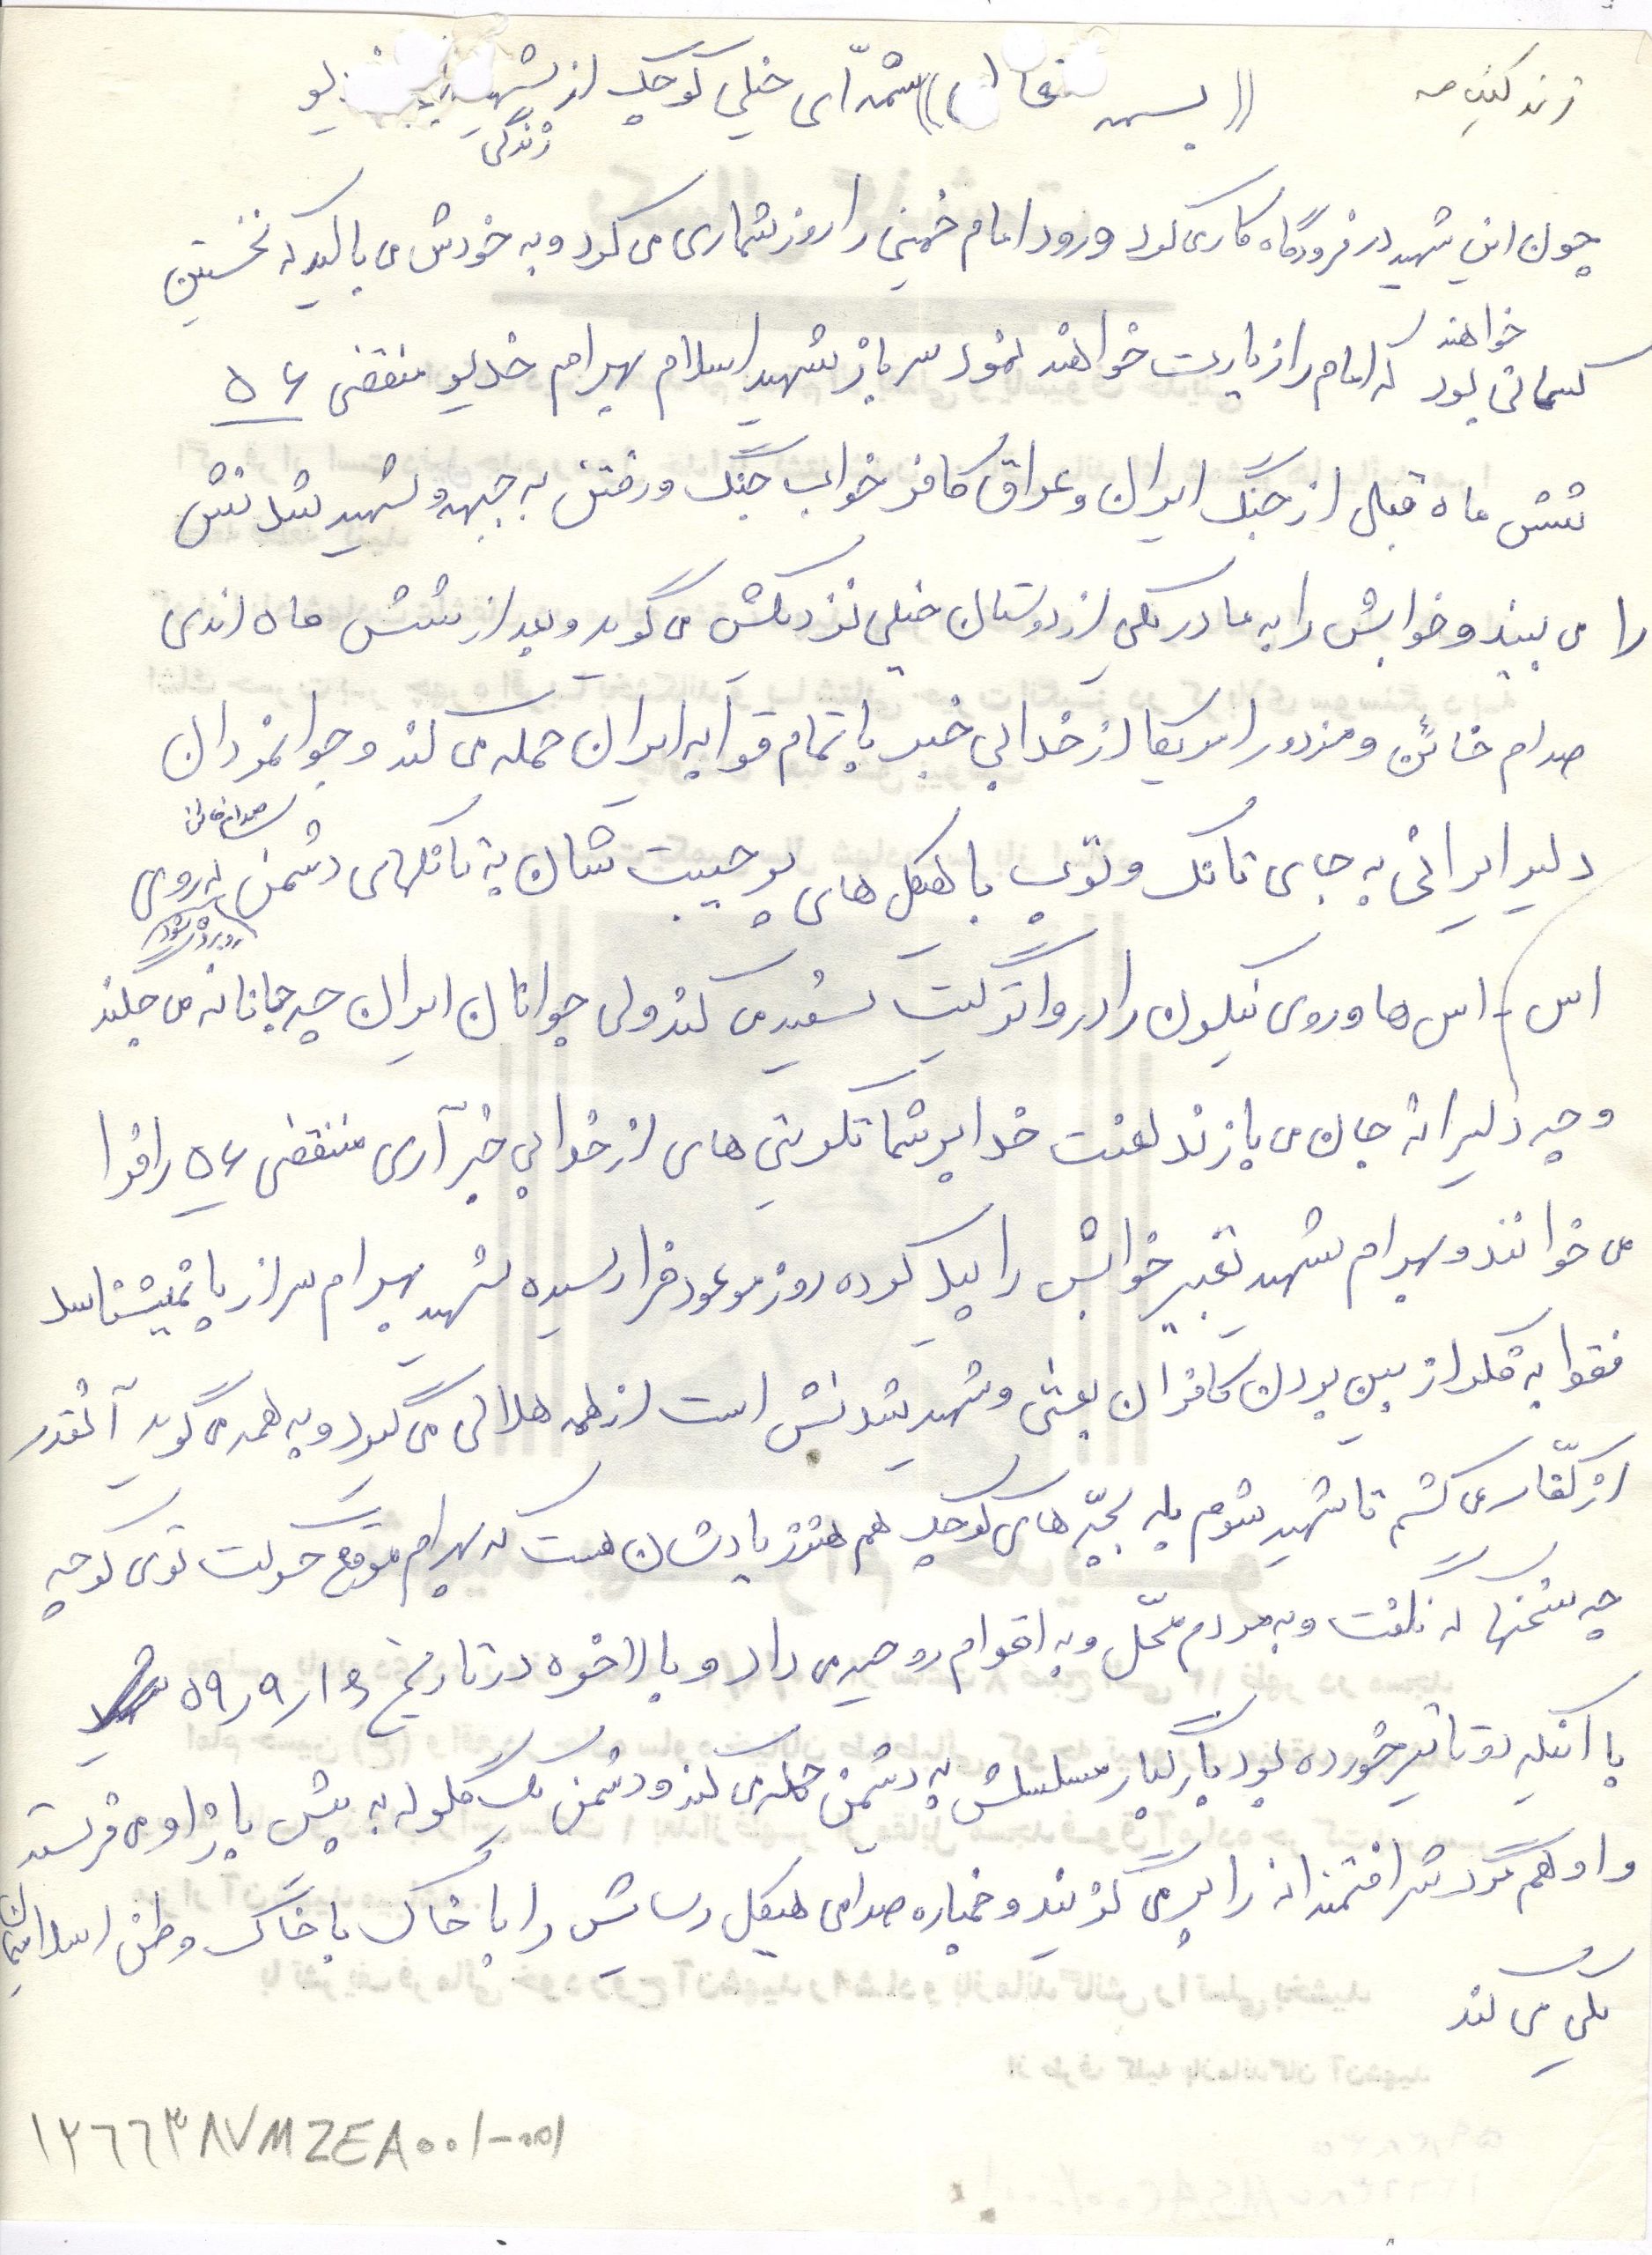 زندگینامه
((بسمه تعالی)) شمّه‌ای خیلی کوچک از زندگی شهید
چون این شهید در فرودگاه کار می کرد ورود امام خمینی را روز شماری می کرد و به خودش می بالید که نخستین
کسانی خواهند بود که امام را زیارت خواهند نمود سرباز شهید اسلام بهرام خدیو منقضی ۵۶
شش ماه قبل از جنگ ایران و عراق کافر خواب جنگ و رفتن به جبهه و شهید شدنش
را می بیند و خوابش را به مادر یکی از دوستان خیلی نزدیکش می گوید و بعد از شش ماه اندی
صدام خائن و مزدور امریکا از خدا بی خبر با تمام قوا به ایران حمله می کند و جوانمردان
دلیر ایرانی به جای تانک و توپ با هیکل های پر هیبت شان به تانکهای دشمن که روی
اس اس ها و روی نیکون را در واترگیت سفید می کند ولی جوانان ایران چه جانانه می جنگند
و چه دلیرانه جان می بازند لعنت خدا بر شما تکریتی های از خدا بی خبر آری منتقضی ۵۶ را فرا
می خوانند و بهرام شهید تعبیر خوابش را پیدا کرده روز موعود فرا رسیده شهید بهرام سر از پا نمیشناسد
فقط به فکر از بین بردن کافران بعثی و شهید شدنش است از همه هلالی می گیرد و به همه می گوید آنقدر
از کفّار می کشم تا شهید شوم بله بچّه های کوچک هم هنوز یادشان هست که بهرام موقع حرکت توی کوچه
چه سخنها که نگفت و به مردم محّل و به اقوام روحیه می داد و بالاخره در تاریخ ۵۹/۹/۱۶
با اینکه دو تا تیر خورده بود با رگبار مسلسلش به دشمن حمله می کند و دشمن یک گلوله به پیش باز او می فرستد
و او هم مرگ شرافتمندانه را بر می گزیند و خمپاره صدّامی هیکل رسایش را با خاک با خاک وطن اسلامیمان
یکی می کند
۱۲۶۶۳۸۷MZEA۰۰۱-۰۰۱